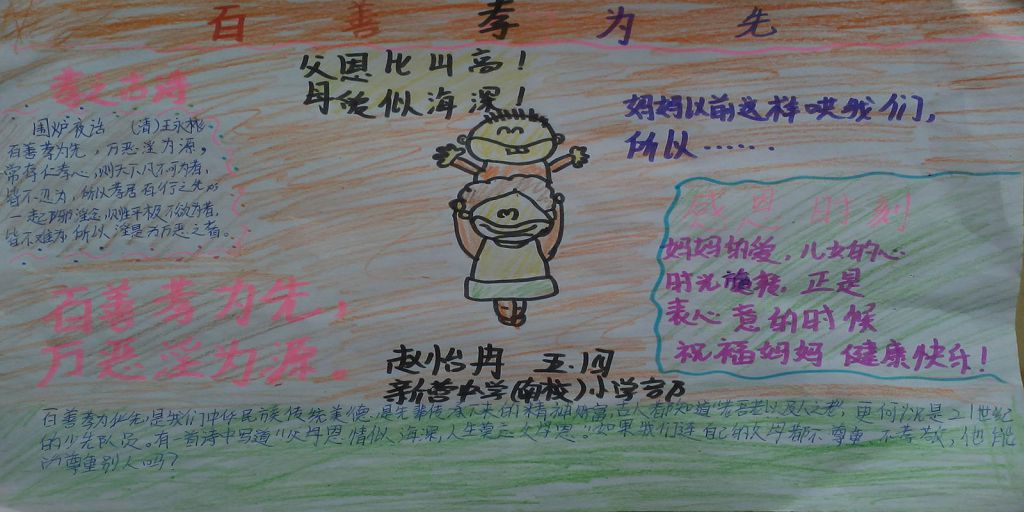 百善孝为先
父恩比山高！
母爱似海深！
孝之古诗
围炉夜话 （清）王永彬
百善孝为先，万恶淫为源，
常存仁孝心，则天下凡不可为者，
皆不忍为，所以孝居百行之先
一起邪淫念，则生平极不欲为者，
皆不难为 所以淫是万恶之首。
妈妈以前这样哄我们，
所以……
感恩时刻
妈妈的爱，儿女的心
时光 正是
表心意的时候
祝福妈妈 健康快乐！
百善孝为先，
万恶淫为源。
赵怡冉 五.四
新誉中学（南校）小学部
百善孝为先，是我们中华民族传统美德，是先辈传承下来的精神财富，古人都知道“老吾老以及人之老，更何况是21世纪
的少先队员。有一首诗中写道“父母恩情似海深，人生莫忘父母恩。”如果我们连自己的父母都不尊重、不孝敬，他能
的尊重别人吗？